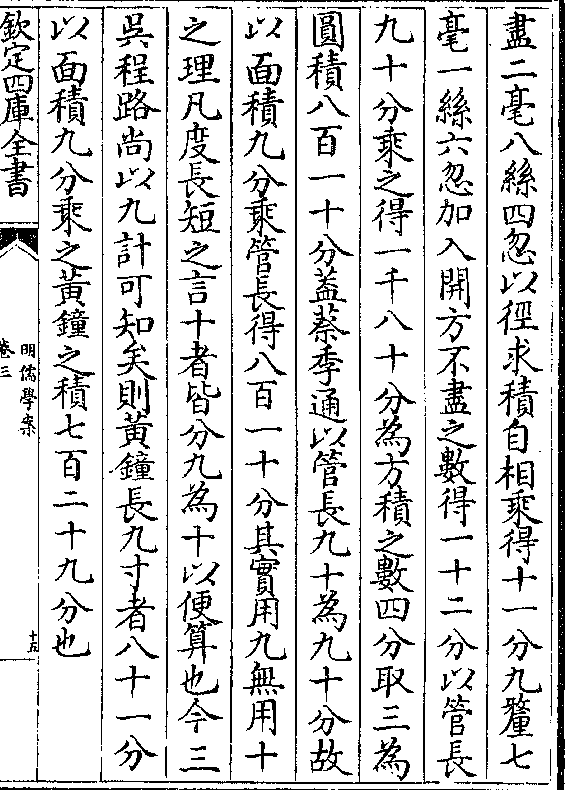 盡二毫八絲四忽以徑求積自相乘得十一分九釐七
毫一絲六忽加入開方不盡之數得一十二分以管長
九十分乘之得一千八十分為方積之數四分取三為
圓積八百一十分蓋蔡季通以管長九十為九十分故
以面積九分乘管長得八百一十分其實用九無用十
之理凡度長短之言十者皆分九為十以便算也今三
吳程路尚以九計可知矣則黃鐘長九寸者八十一分
以面積九分乘之黃鐘之積七百二十九分也
欽定四庫全書
明儒學案
卷三
十五